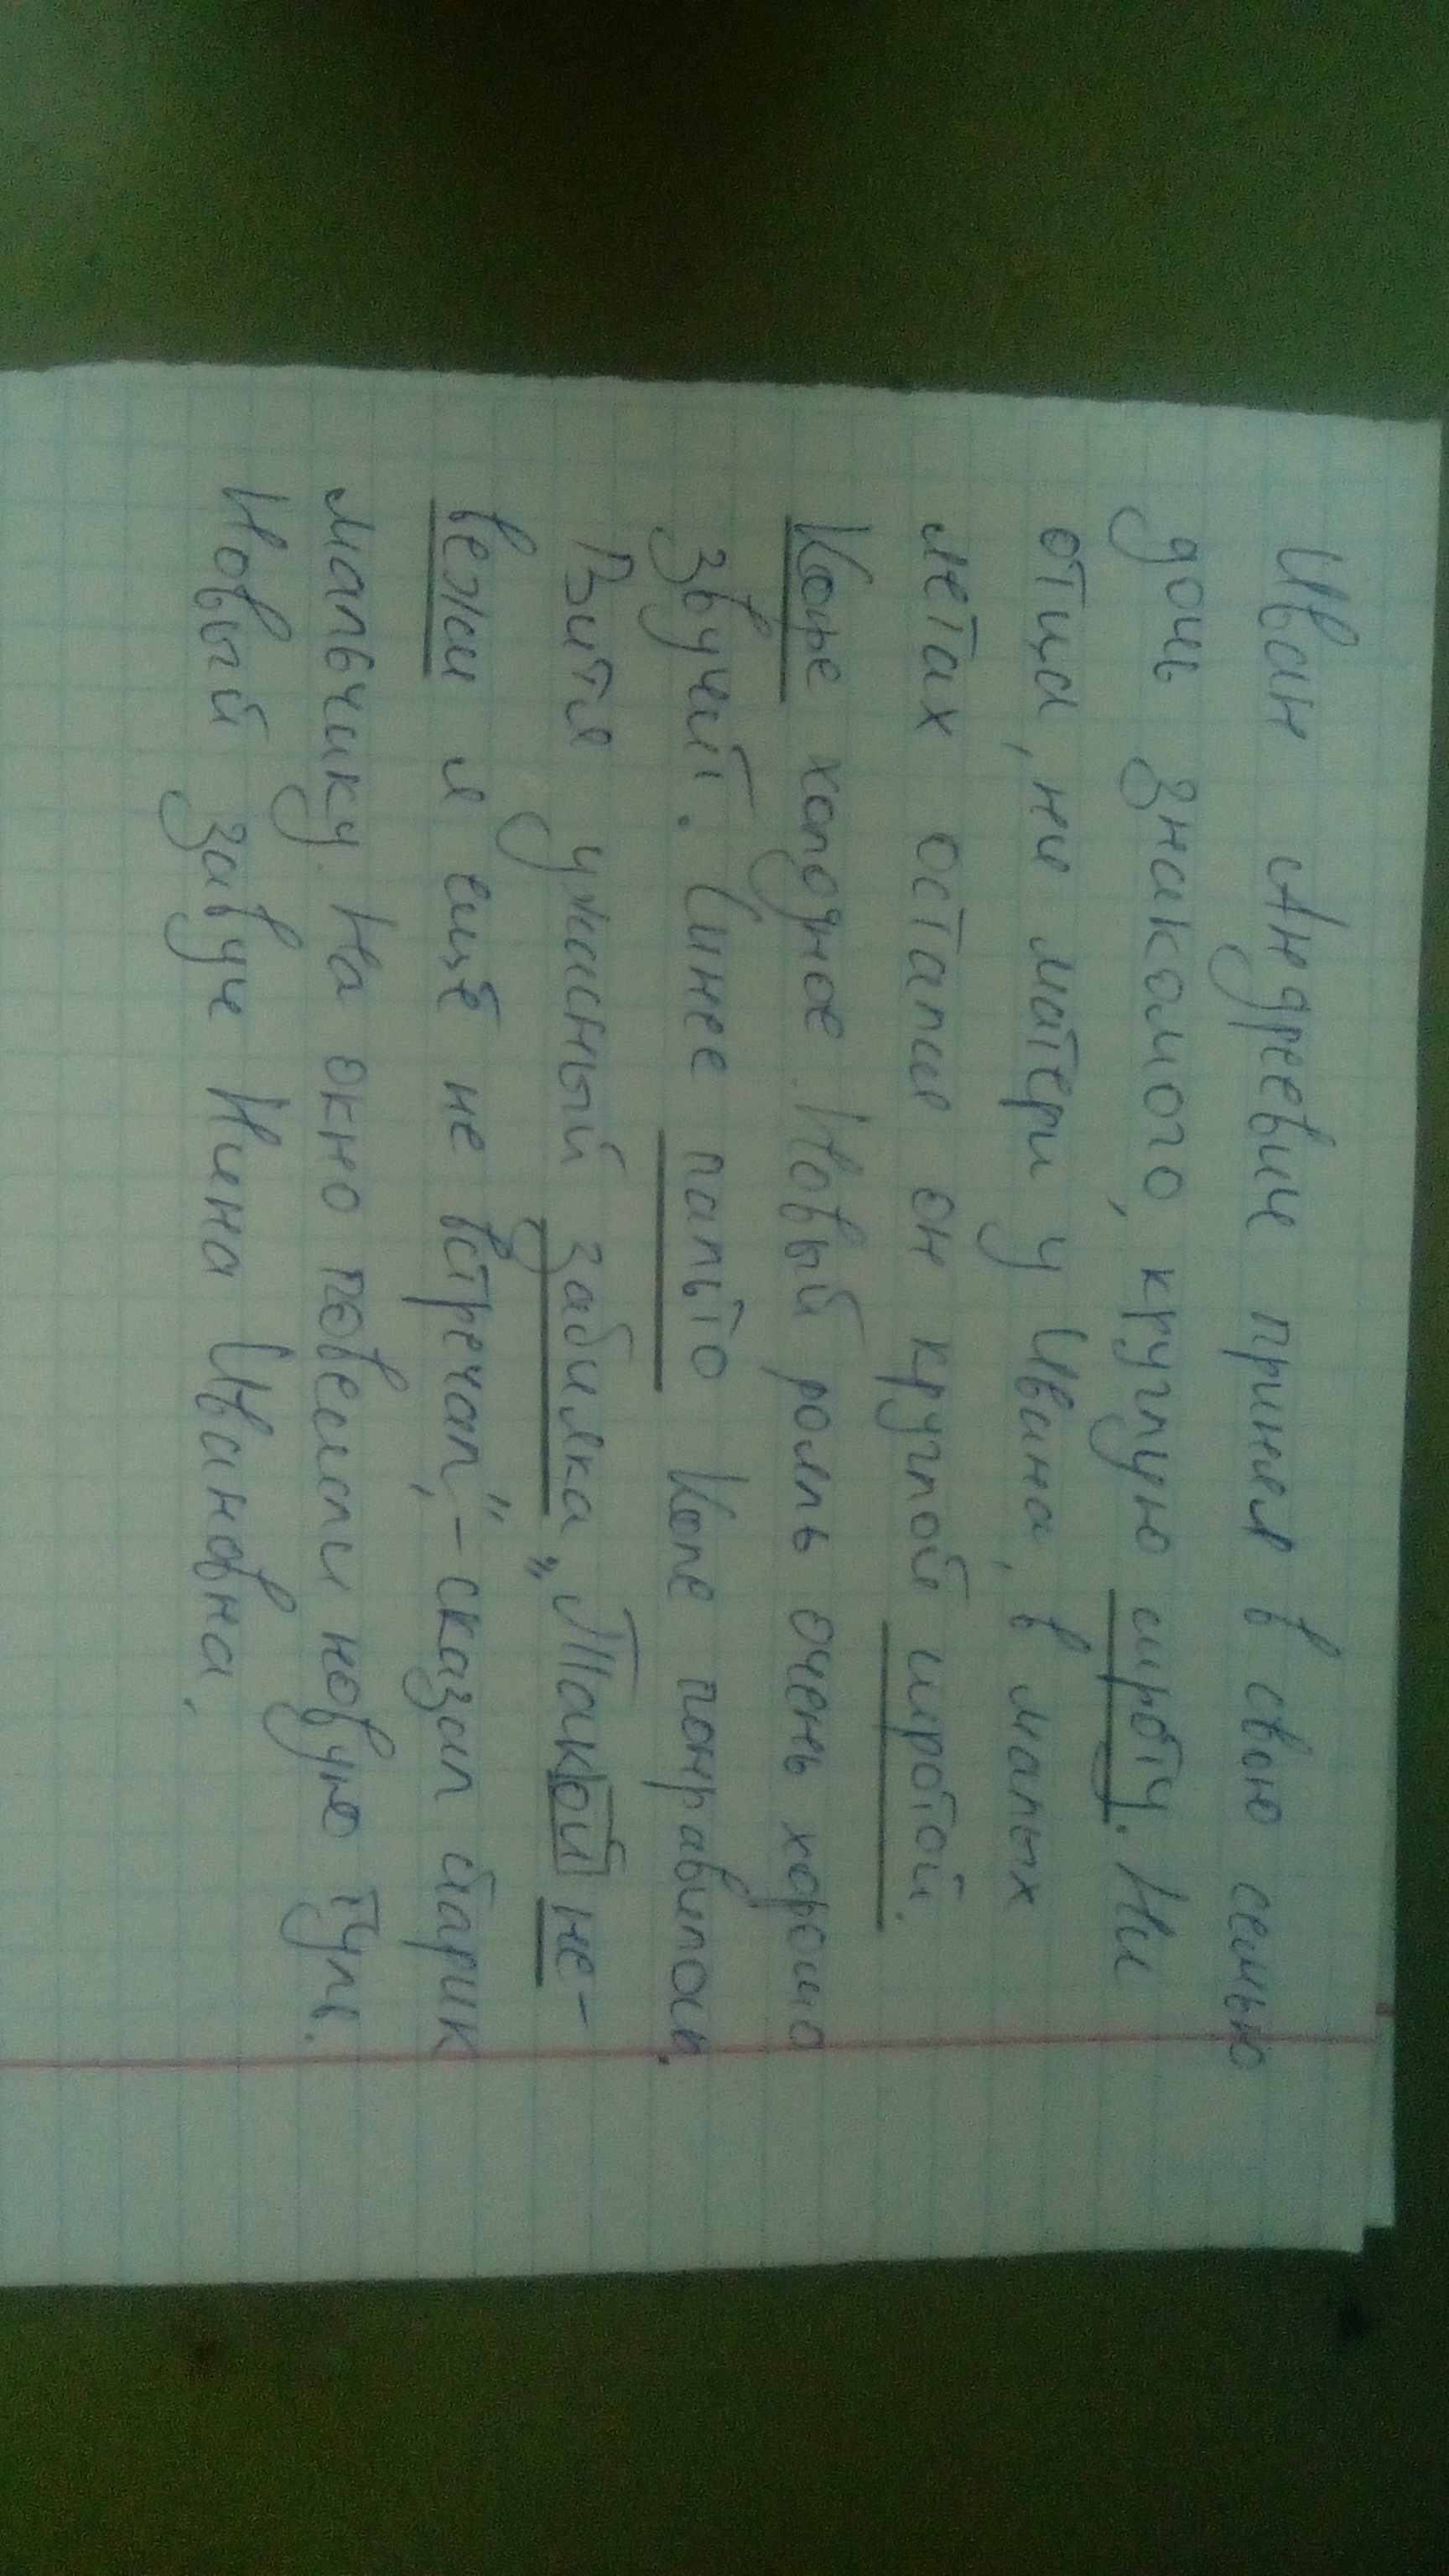 Иван Андреевич принял в свою семью
дочь знакомого, круглую сироту. Ни
отца, ни матери у Ивана, в малых
летах остался он круглой сиротой.
Кофе холодное. Новый рояль очень хорошо
звучит. Синее пальто Коле понравилось.
Витя ужасный забияка. „Такой не-
вежи я ещё не встречал", - сказал старик
мальчику. На окно повесили новую тул.
Новый завуч Нина Ивановна.